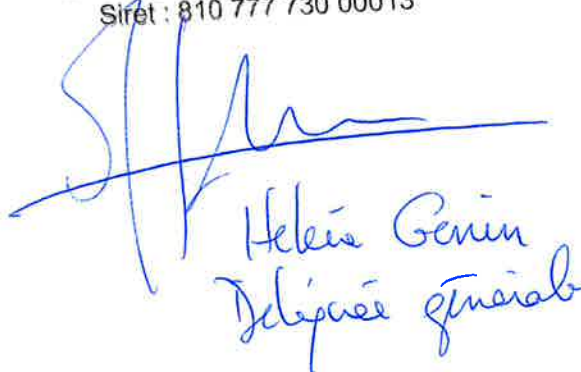 Siret : 810 777 730 00013
Genin
Déléguée générale